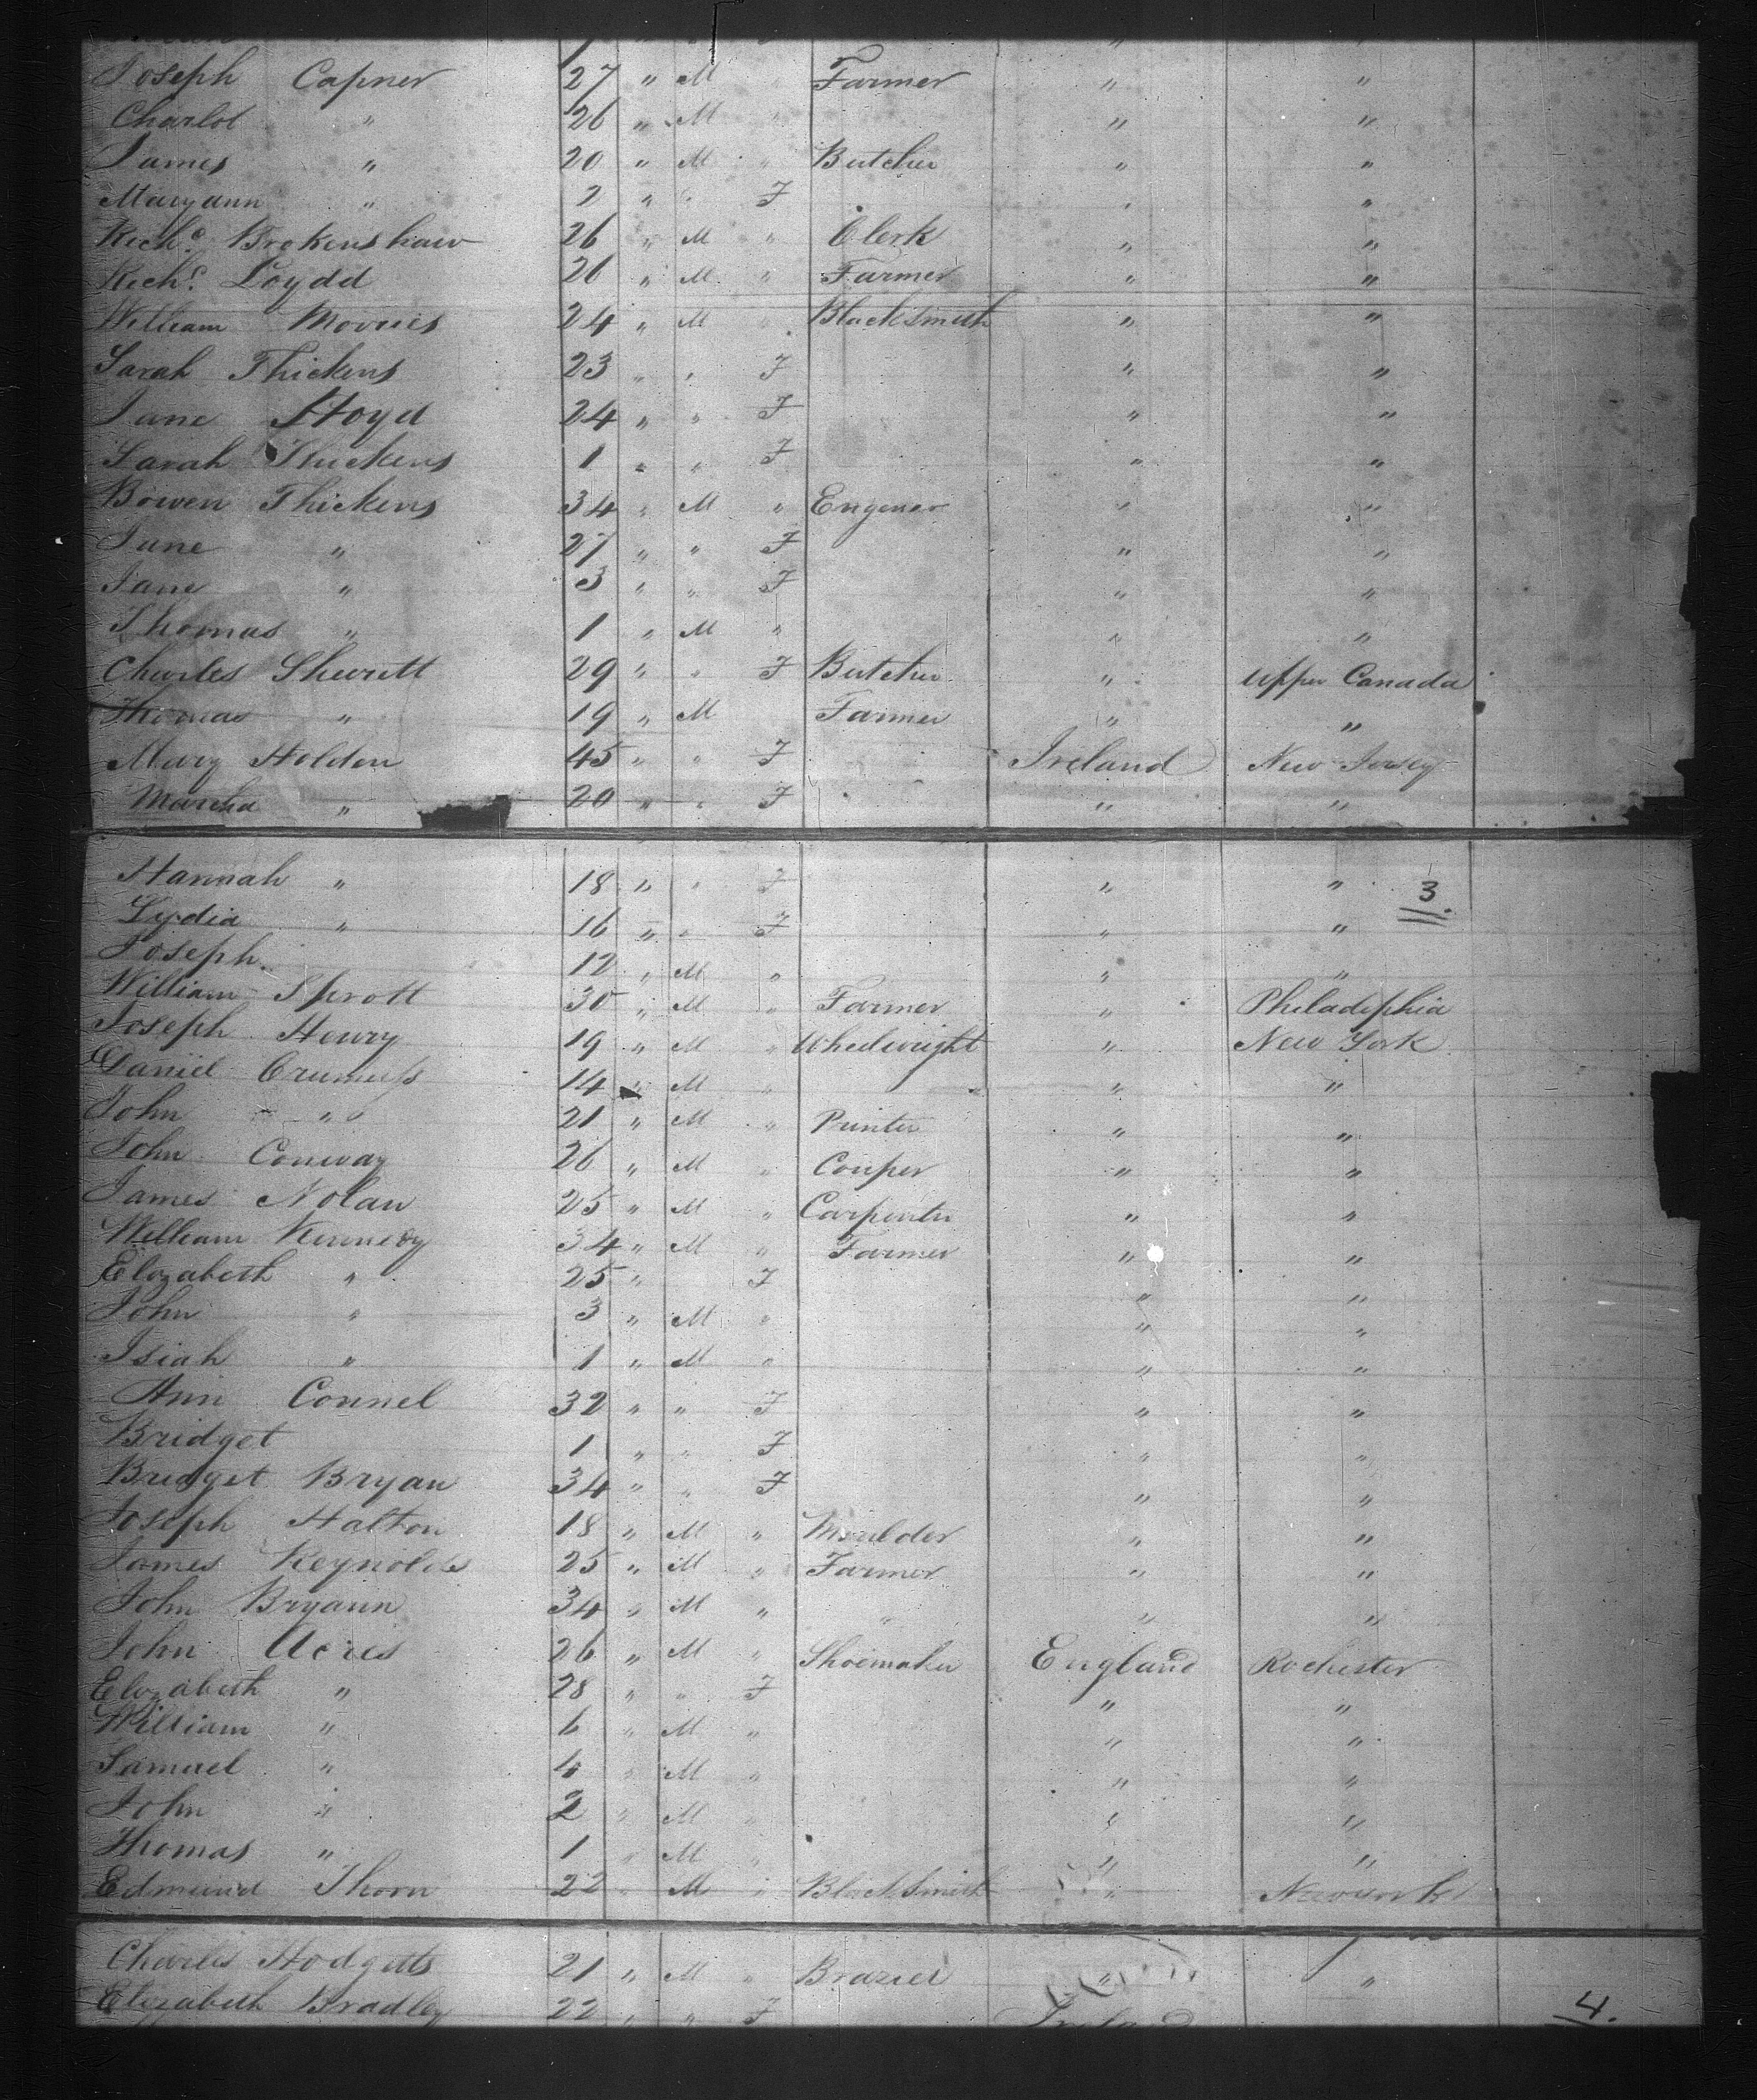 Joseph Capner 27 " M " Farmer " "
Charlot " 26 " M " " "
James " 20 " M " Butcher " "
Maryann " 2 " " F " "
Richd. Brokenshaw 26 " M " Clerk " "
Richd. Loydd 26 " M " Farmer " "
William Morries 24 " M " Blacksmith " "
Sarah Thickens 23 " " F " "
Jane Lloyd 24 " " F " "
Sarah Thickens 1 " " F " "
Bowen Thickens 34 " M " Engener " "
Jane " 27 " " F " "
Jane " 3 " " F " "
Thomas " 1 " M " " "
Charles 29 " " F Butcher " Upper Canada
Thomas " 19 " M Farmer " "
Mary Holden 45 " " F Ireland New Jersey
Martha " 20 " " F " "
Hannah " 18 " " F " " 3.
Lydia " 16 " " F " "
Joseph 12 " M " " "
William Sprott 30 " M " Farmer " Philadephia
Joseph Henry 19 " M " Whelwright " New York
Daniel 14 " M " " "
John " 21 " M " Printer " "
John Conway 26 " M " Couper " "
James Nolan 25 " M " Carpenter " "
William Kennedy 34 " M " Farmer " "
Elozabeth " 25 " F " "
John " 3 " M " " "
Isiah " 1 " M " " "
Ann Connel 32 " " F " "
Bridget 1 " " F " "
Bridget Bryan 34 " " F " "
Joseph Halton 18 " M " Moulder " "
James Reynolds 25 " M " Farmer " "
John Bryann 34 " M " " " "
John Acres 26 " M " Shoemaker England Rochester
Elozabeth " 28 " " F " "
William " 6 " M " " "
Samuel " 4 " M " " "
John " 2 " M " " "
Thomas " 1 " M " " "
Edmund Thorn 22 " M " BlackSmith " Newyork
Charles Hodgetts 21 " M " Brazier " "
Elozabeth Bradley 22 " " F Ireland 4.